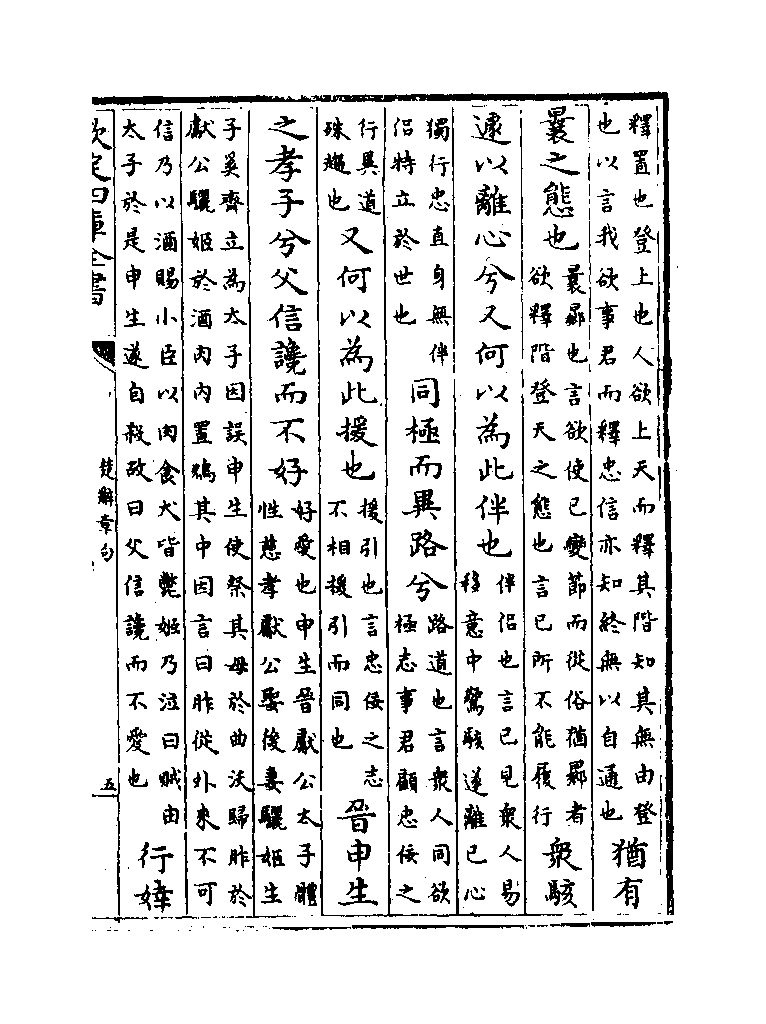 釋置也登上也人欲上天而釋其階知其無由登
也以言我欲事君而釋忠信亦知終無以自通也
猶有
曩之態也
曩曏也言欲使已變節而從俗猶曏者
欲釋階登天之態也言已所不能履行
衆駭
遽以離心兮又何以為此伴也
伴侣也言已見衆人易
移意中驚駭遂離已心
獨行忠直身無伴
侣特立於世也
同極而異路兮
路道也言衆人同欲
極志事君顧忠佞之
行異道
殊趨也
又何以為此援也
援引也言忠佞之志
不相援引而同也
晉申生
之孝子兮父信讒而不好
好愛也申生晉獻公太子體
性慈孝獻公娶後妻驪姬生
子奚齊立為太子因誤申生使祭其母於曲沃歸胙於
獻公驪姬於酒肉内置鴆其中因言曰胙從外來不可
信乃以酒賜小臣以肉食犬皆斃姬乃泣曰賊由
太子於是申生遂自殺故曰父信讒而不愛也
行婞
欽定四庫全書
楚辭章句
五